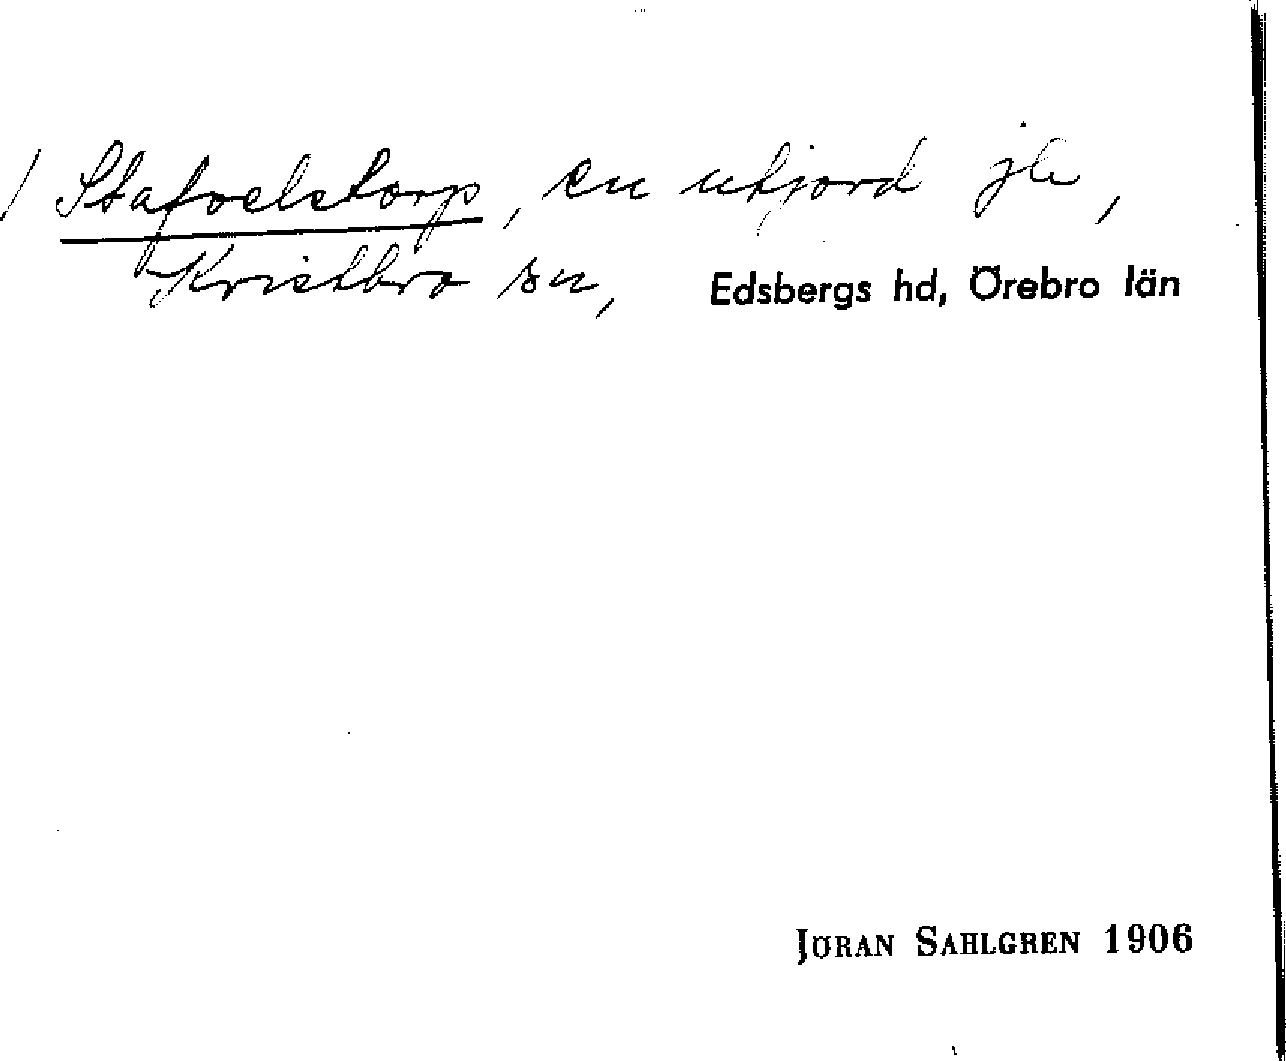 / Stafvelstorp, en utjord jle,
Kvistbro sn, Edsbergs hd, Örebro län
JÖRAN SAHLGREN 1906